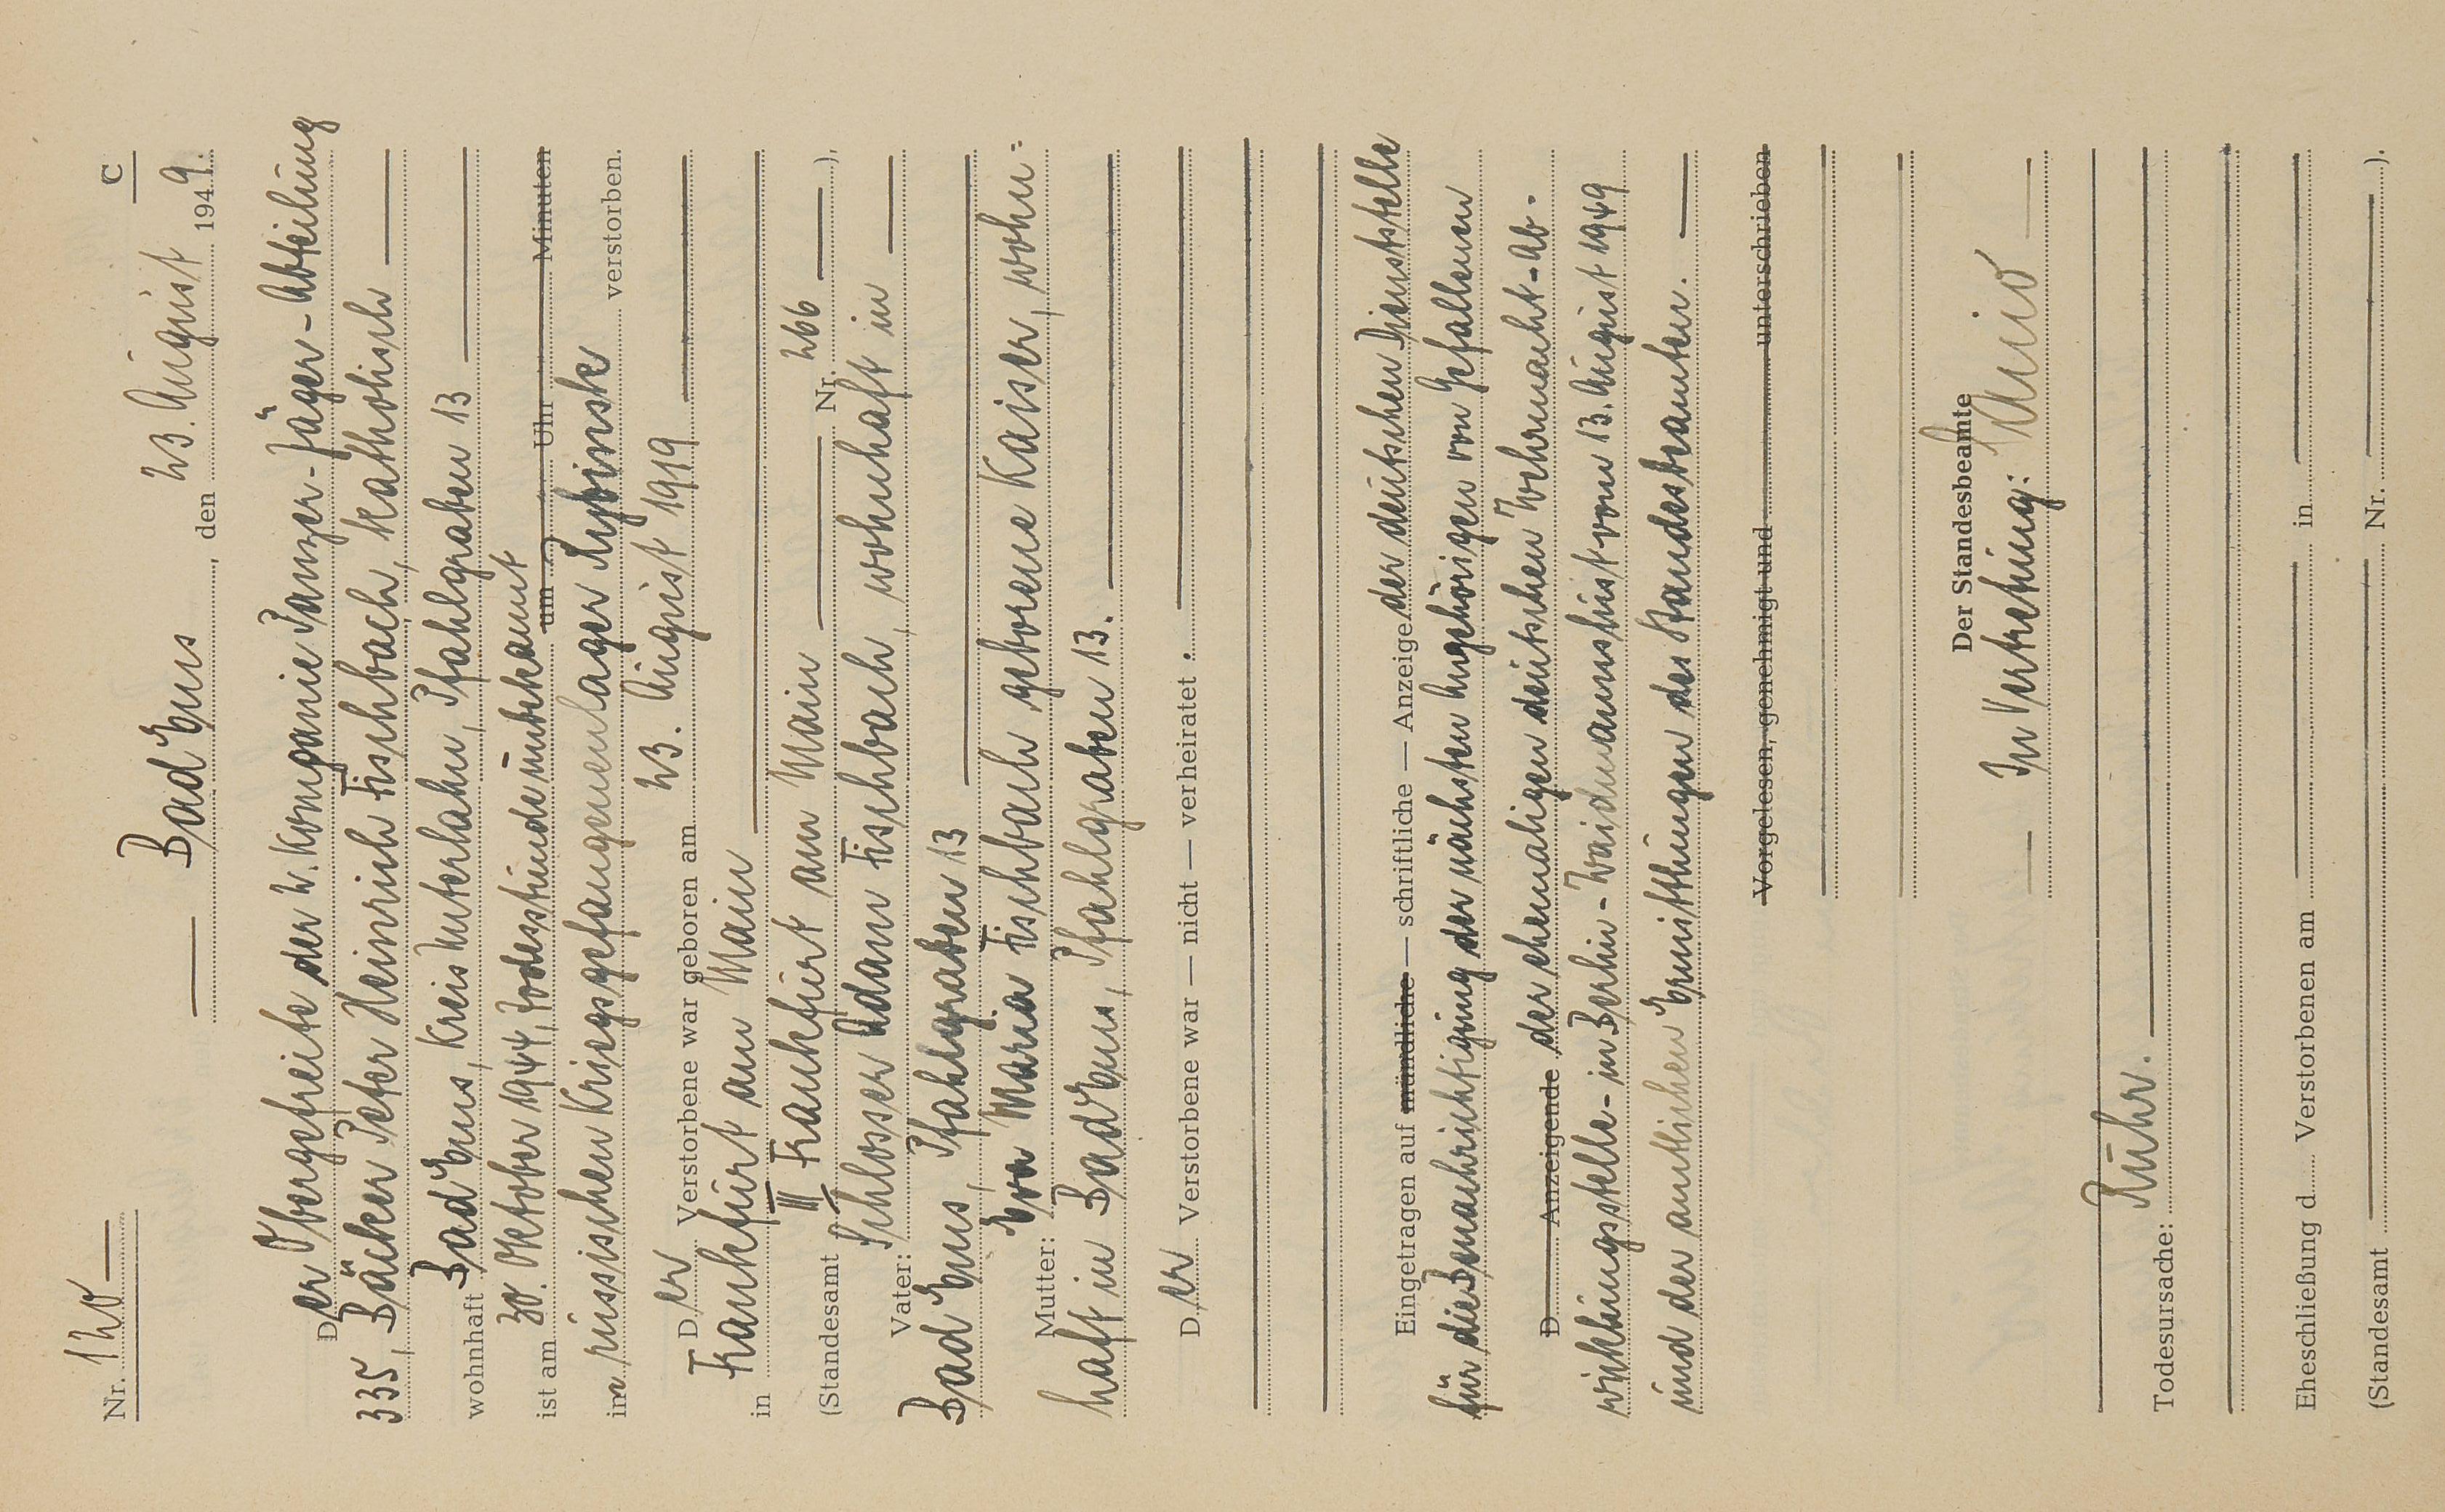 Nr. 120 C
Bad Ems, den 23. August 1949.
Der Obergefreite der 2. Kompanie Panzer-Jäger-Abteilung
335, Bäcker Peter Heinrich Fischbach, katholisch
wohnhaft Bad Ems, Kreis Unterlahn, Pfahlgraben 13
ist am 30. Oktober 1944, Todesstunde unbekannt um Uhr Minuten
im russischen Kriegsgefangenenlager verstorben.
Der Verstorbene war geboren am 23. August 1919
in Frankfurt am Main
(Standesamt III Frankfurt am Main Nr. 266 ).
Vater: Schlosser Adam Fischbach, wohnhaft in
Bad Ems, Pfahlgraben 13
Mutter: Eva Maria Fischbach geborene Kaiser, wohn=
haft in Bad Ems, Pfahlgraben 13.
Der Verstorbene war — nicht — verheiratet.
Eingetragen auf mündliche — schriftliche — Anzeige der deutschen Dienststelle
für die Benachrichtigung der nächsten Angehörigen von Gefallenen
D Anzeigende der ehemaligen deutschen Wehrmacht-Ab-
wicklungsstelle-in Berlin-Waidmannslust vom 13. August 1949
und der amtlichen Ermittlungen des Standesbeamten.
Vorgelesen, genehmigt und unterschrieben
Der Standesbeamte
In Vertretung:
Todesursache: Ruhr.
Eheschließung d. Verstorbenen am in
(Standesamt Nr. ).